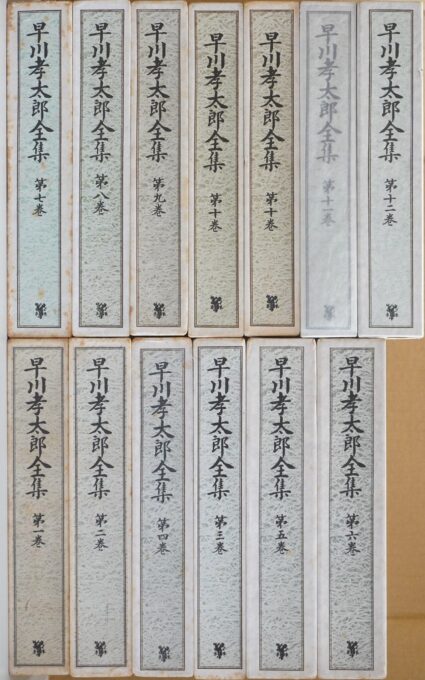 早川孝太郎全集 第七巻
早川孝太郎全集 第八巻
早川孝太郎全集 第九巻
早川孝太郎全集 第十巻
早川孝太郎全集 第十巻
早川孝太郎全集 第十一巻
早川孝太郎全集 第十二巻
早川孝太郎全集 第一巻
早川孝太郎全集 第二巻
早川孝太郎全集 第四巻
早川孝太郎全集 第三巻
早川孝太郎全集 第五巻
早川孝太郎全集 第六巻